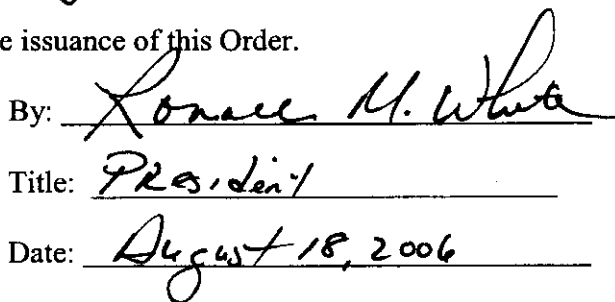 e issuance of this Order.
By: Ronald M. White
Title: President
Date: August 18, 2006